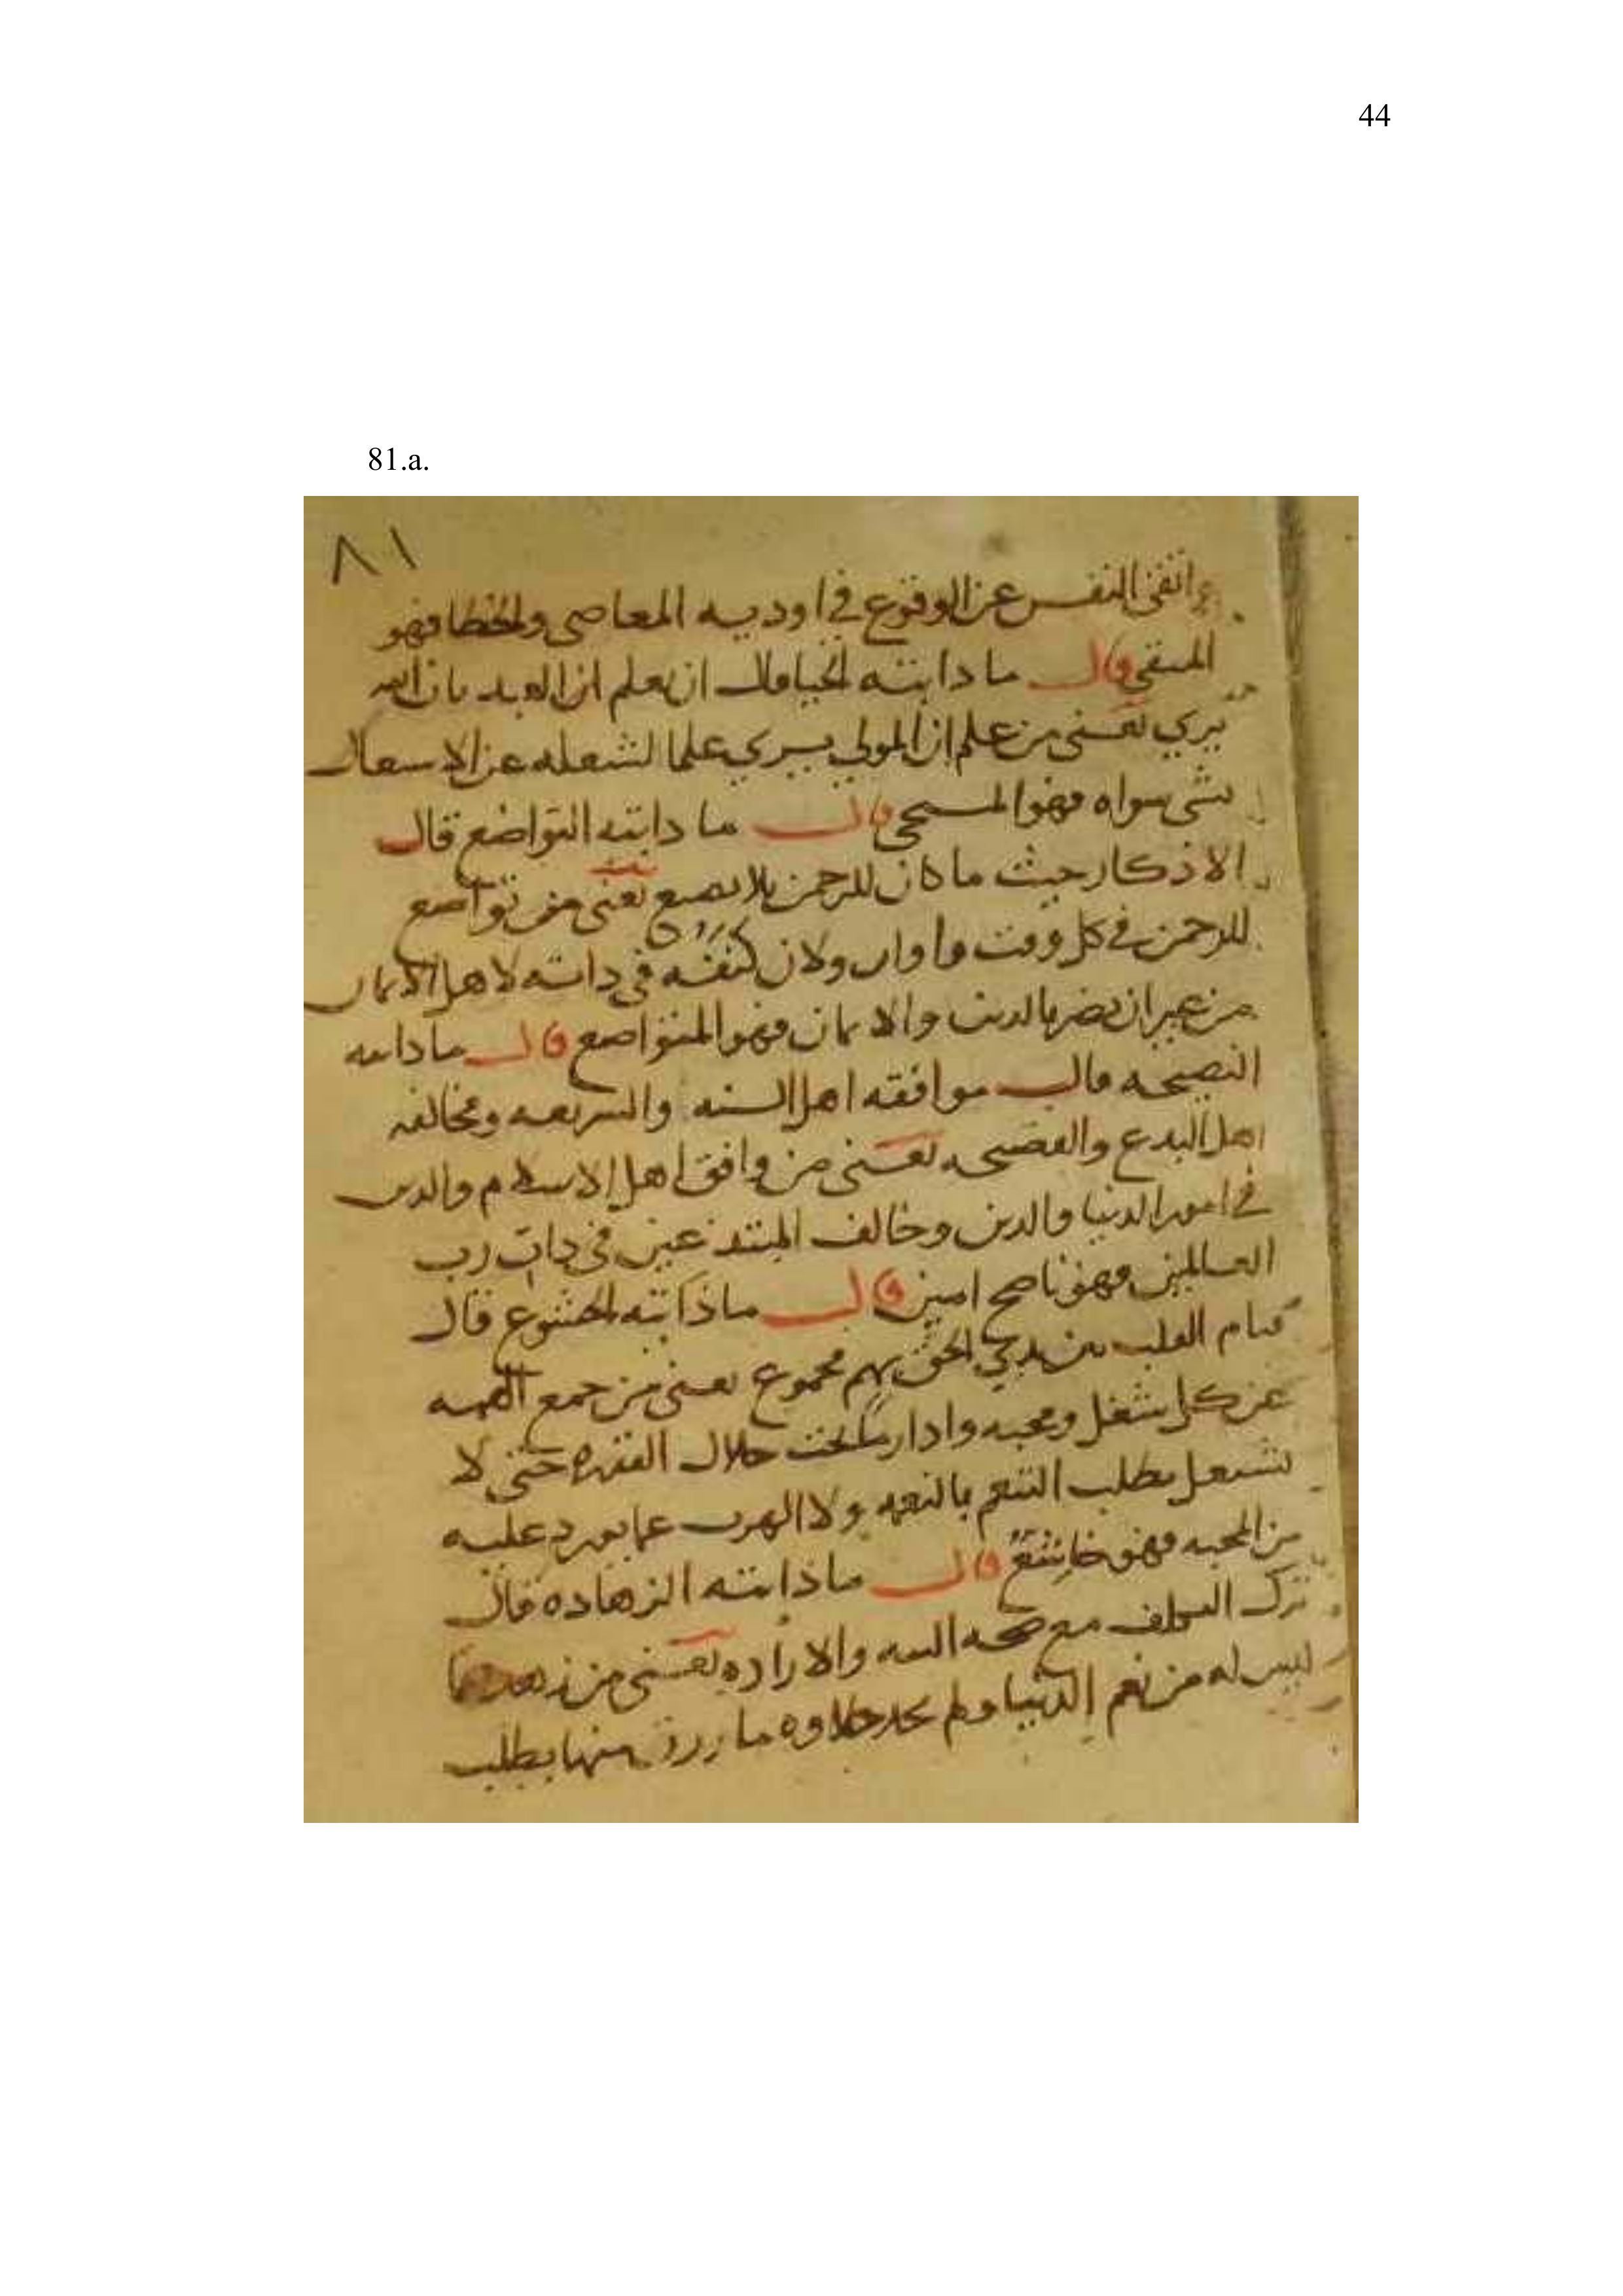 44
81.a.
٨١
واتقى النفس عن الوقوع في اوديه المعاصى والخطا فهو
المتقي قال ما ذا بته الحيا قال ان يعلم ان العبد بان الله
يرى يعنى من علم ان المولى يرى علما لشغله عن الاسعال
بشى سواه فهو المستحى قال ما ذا بته التواضع قال
الاذكار حيث ما كان للرحمن بلا يعنى من تواضع
للرحمن في كل وقت واوان ولان كنفه فى ذاته لاهل الايمان
من غير ان يضر بالدين والايمان فهو المتواضع قال ما ذا بته
النصيحه قال موافقه اهل السنه والشريعه ومخالفه
اهل البدع والفضيحه يعنى من وافق اهل الاسلام والدين
في امور الدنيا والدين وخالف المبتدعين فى ذات رب
العالمين فهو ناصح امين قال ما ذا بته الخشوع قال
قيام القلب بين يدي الحق بهم مجموع يعنى من جمع الهمه
عن كل شغل ومحبه وادا خلال الفقره حتى لا
يشتغل بطلب التنعم بالنعمه ولا الهرب عما يورد عليه
من المحبه فهو خاشع قال ما ذا بته الزهاده قال
ترك التكلف مع صحه النيه والاراده يعنى من زهد
ليس له من نعم الدنيا ولم يجد حلاوه ما رزق منها بطلب